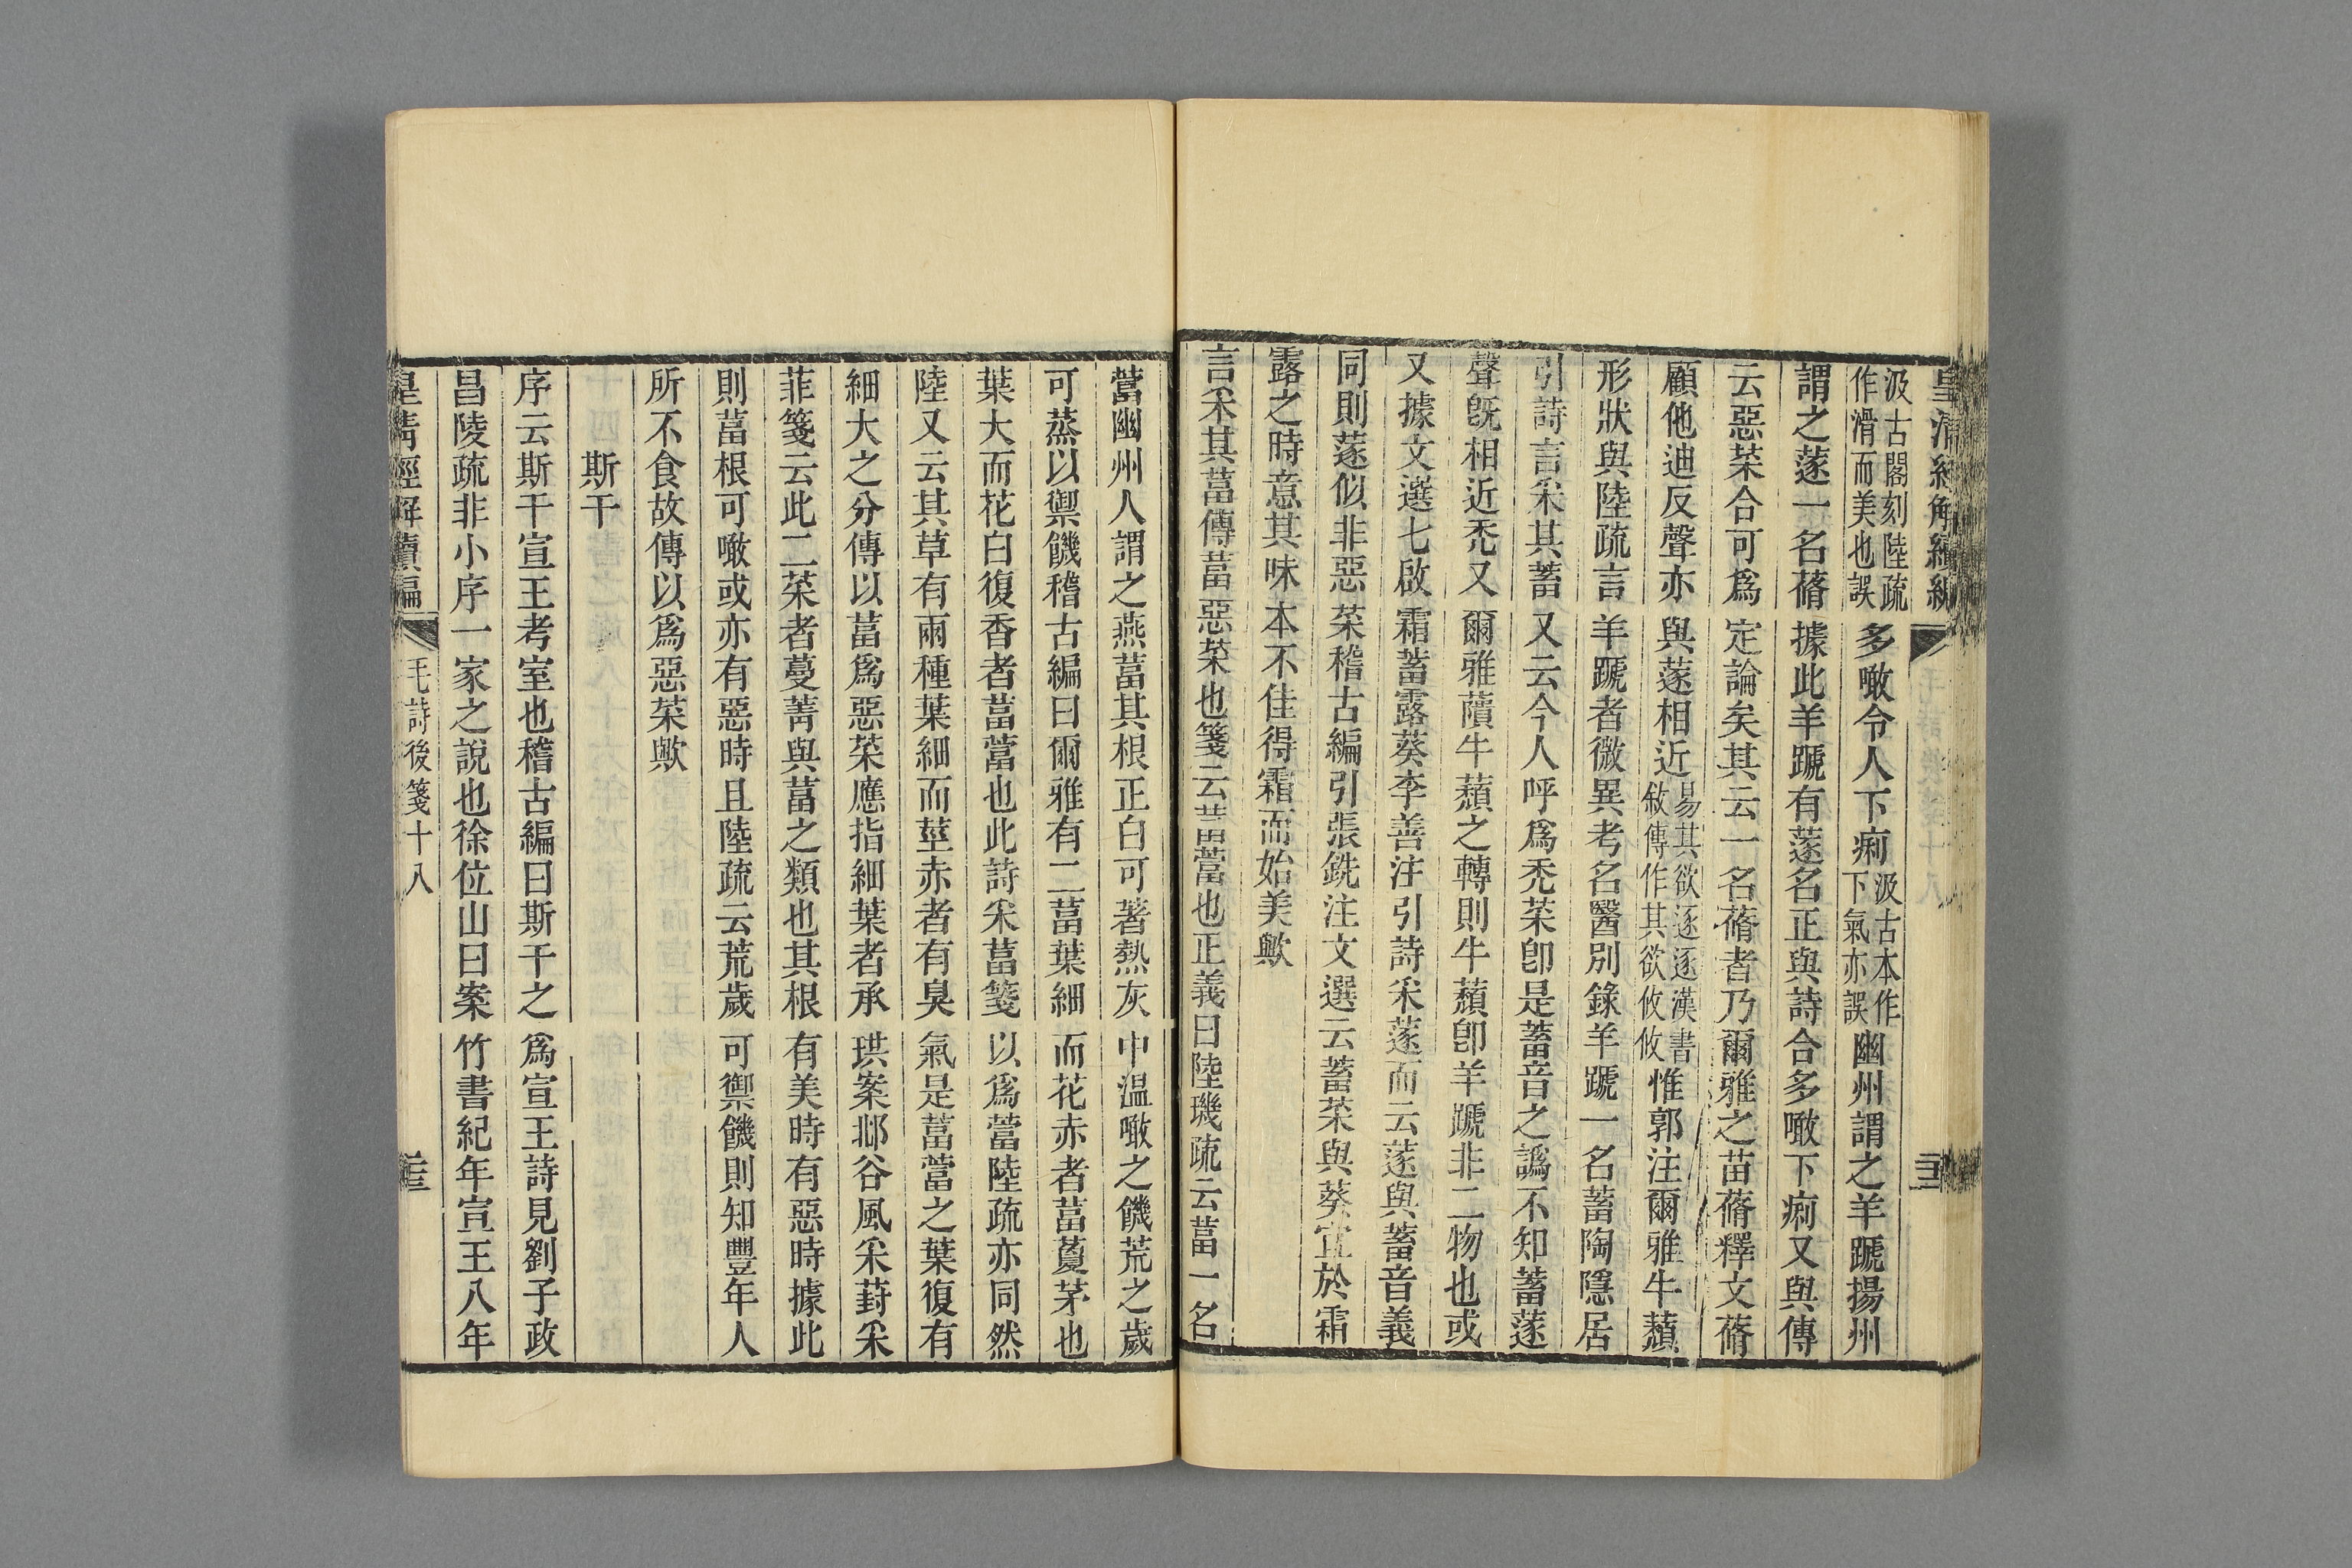 皇清經解續編
汲古閣刻陸疏作滑而美也誤多噉令人下痢汲古本作下氣亦誤幽州謂之羊蹏揚州
謂之蓫一名蓨據此羊蹏有蓫名正與詩合多噉下痢又與傳
云惡菜合可爲定論矣其云一名蓨者乃爾雅之苗蓨釋文蓨
顧他迪反聲亦與蓫相近易其欲逐逐漢書敘傳作其欲攸攸惟郭注爾雅牛蘈
形狀與陸疏言羊蹏者微異考名醫別錄羊蹏一名蓄陶隱居
引詩言采其蓄又云今人呼爲禿菜卽是蓄音之譌不知蓄蓫
聲旣相近禿又爾雅藬牛蘈之轉則牛蘈卽羊蹏非二物也或
又據文選七啟霜蓄露葵李善注引詩采蓫而云蓫與蓄音義
同則蓫似非惡菜稽古編引張銑注文選云蓄菜與葵宜於霜
露之時意其味本不佳得霜而始美歟
言采其葍傳葍惡菜也箋云葍䔰也正義曰陸璣疏云葍一名
䔰幽州人謂之燕葍其根正白可著熱灰中温噉之饑荒之歲
可蒸以禦饑稽古編曰爾雅有二葍葉細而花赤者葍藑茅也
葉大而花白復香者葍䔰也此詩采葍箋以爲䔰陸疏亦同然
陸又云其草有兩種葉細而莖赤者有臭氣是葍䔰之葉復有
細大之分傳以葍爲惡菜應指細葉者承珙案邶谷風采葑采
菲箋云此二菜者蔓菁與葍之類也其根有美時有惡時據此
則葍根可噉或亦有惡時且陸疏云荒歲可禦饑則知豐年人
所不食故傳以爲惡菜歟
斯干
序云斯干宣王考室也稽古編曰斯干之爲宣王詩見劉子政
昌陵疏非小序一家之說也徐位山曰案竹書紀年宣王八年
皇清經解續編 毛詩後箋十八